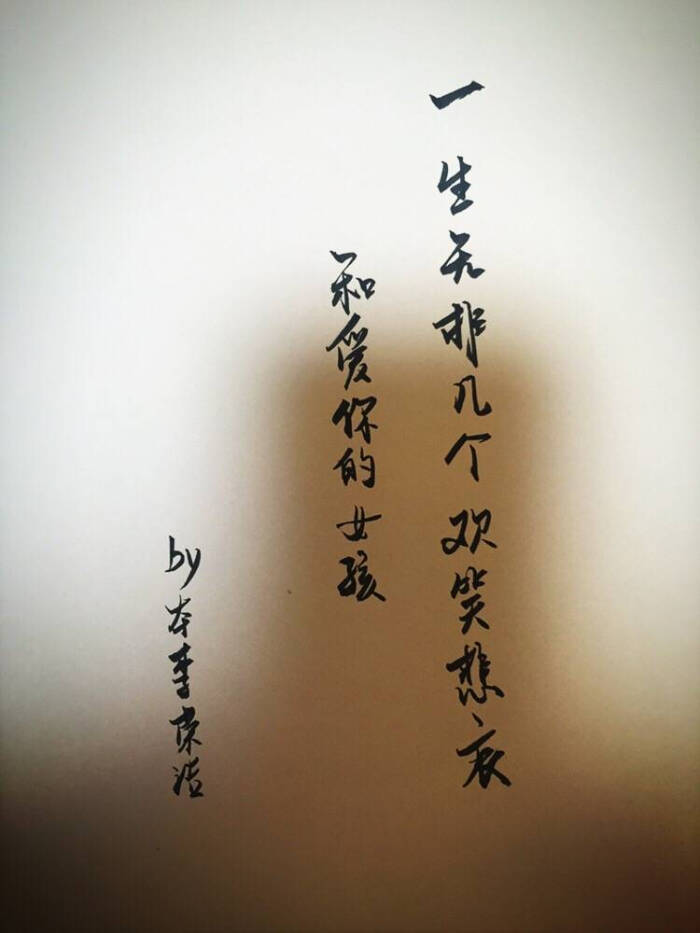 一生无非几个欢笑悲哀
和爱你的女孩
by 本李荣浩